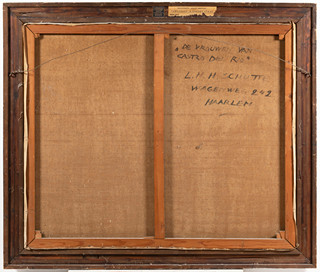 „DE VROUWEN VAN
CASTRO DEL RIO"
L. H. H. SCHUTTE
WAGENWEG 242
HAARLEM